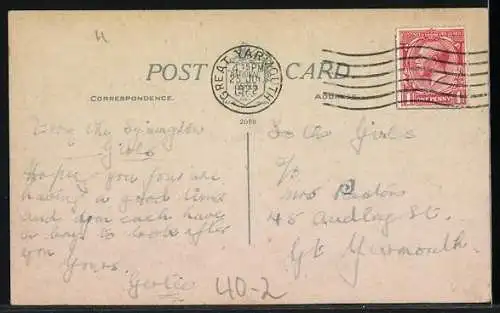 4
POST CARD.
GREAT YARMOUTH
PM
1922
ONE PENNY
CORRESPONDENCE.
ADDRESS
2098
Girls
Hope you four are
having a good time
and you each have
a boy to look after
you
Yours
Gertie
To the Girls
c/o
Mrs
45 Audley St.
Gt Yarmouth
40-2